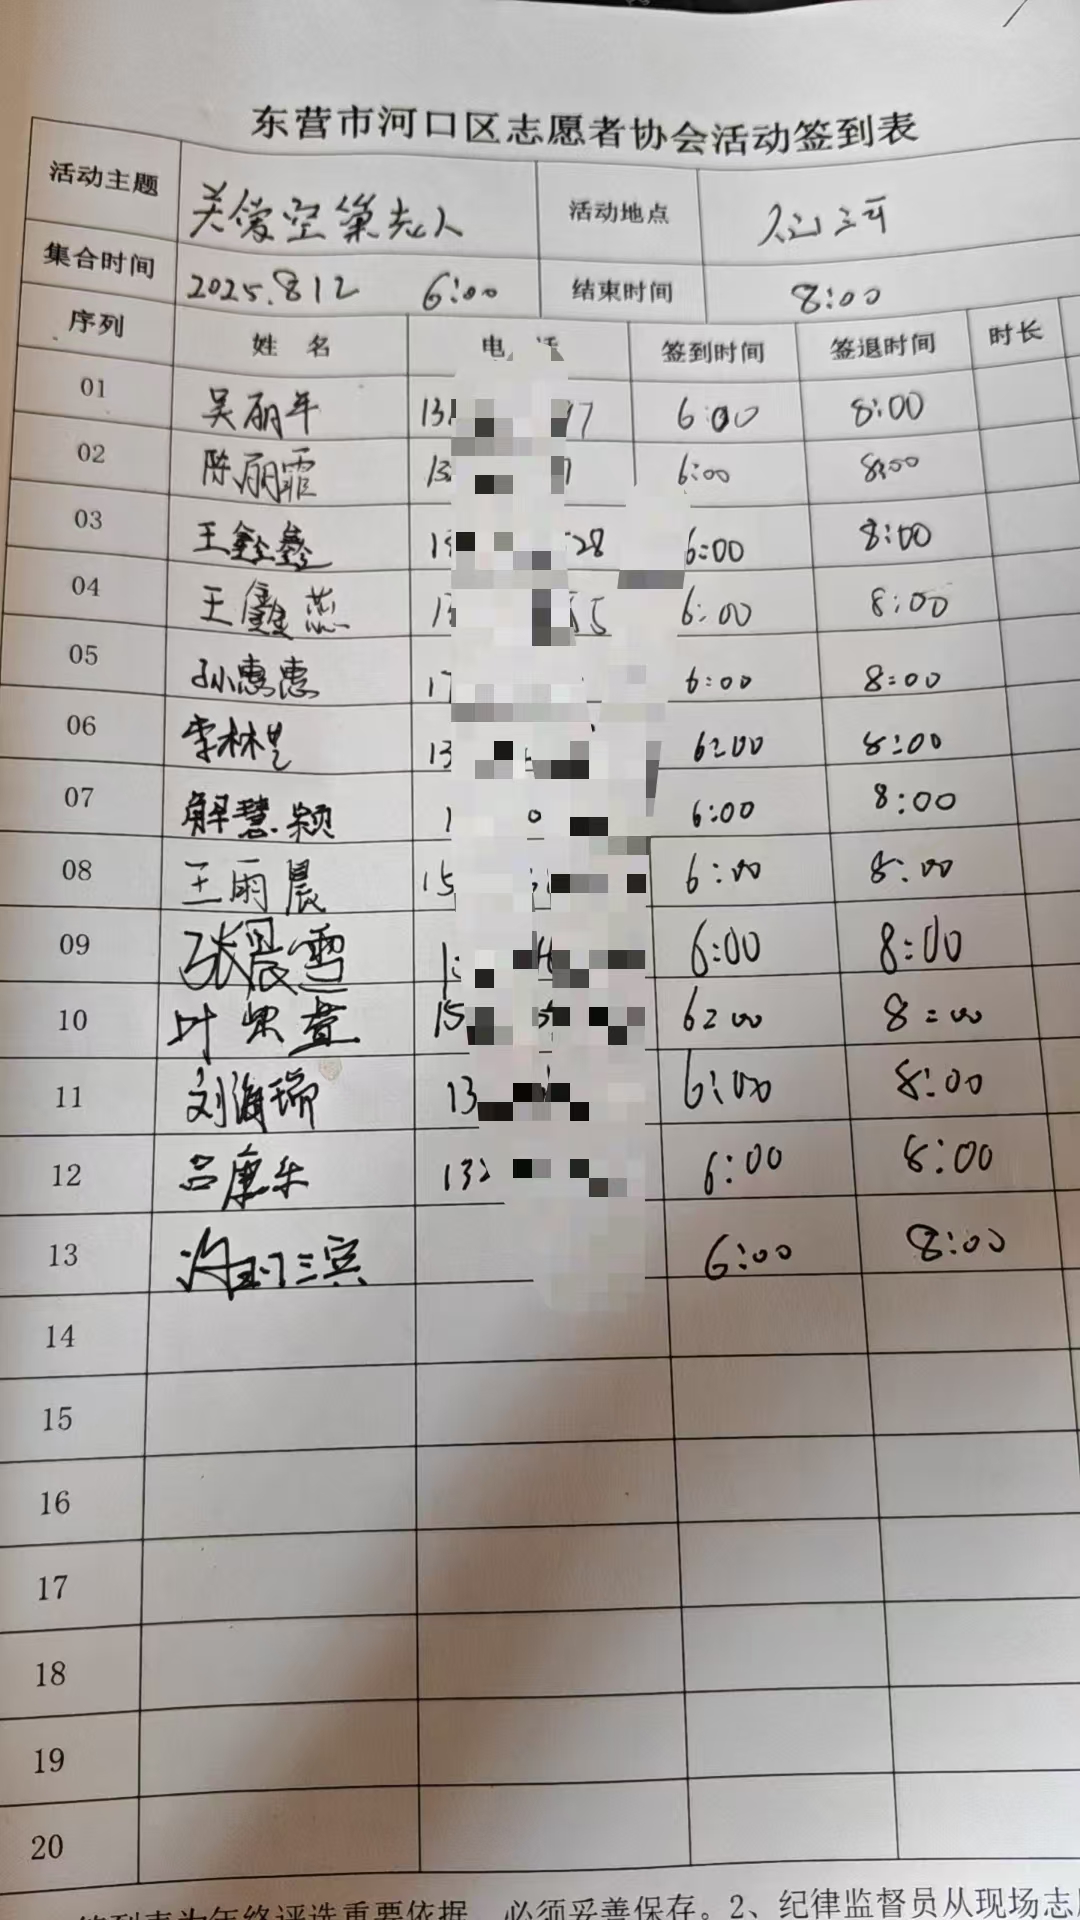 东营市河口区志愿者协会活动签到表
活动主题 关爱空巢老人 活动地点
集合时间 2025.8.12 6:00 结束时间 8:00
序列 姓名 电 签到时间 签退时间 时长
01 吴丽年 13 17 6:00 8:00
02 陈丽霏 13 6:00 8:00
03 王鑫鑫 1 28 6:00 8:00
04 王鑫蕊 1 5 6:00 8:00
05 孙惠惠 17 6:00 8:00
06 李林 13 6:00 8:00
07 解慧颖 1 6:00 8:00
08 王雨晨 15 6:00 8:00
09 张晨雪 1 6:00 8:00
10 叶 萱 15 6:00 8:00
11 刘海瑞 13 6:00 8:00
12 吕康乐 132 6:00 8:00
13 6:00 8:00
14
15
16
17
18
19
20
签到表为年终评选重要依据，必须妥善保存。2、纪律监督员从现场志